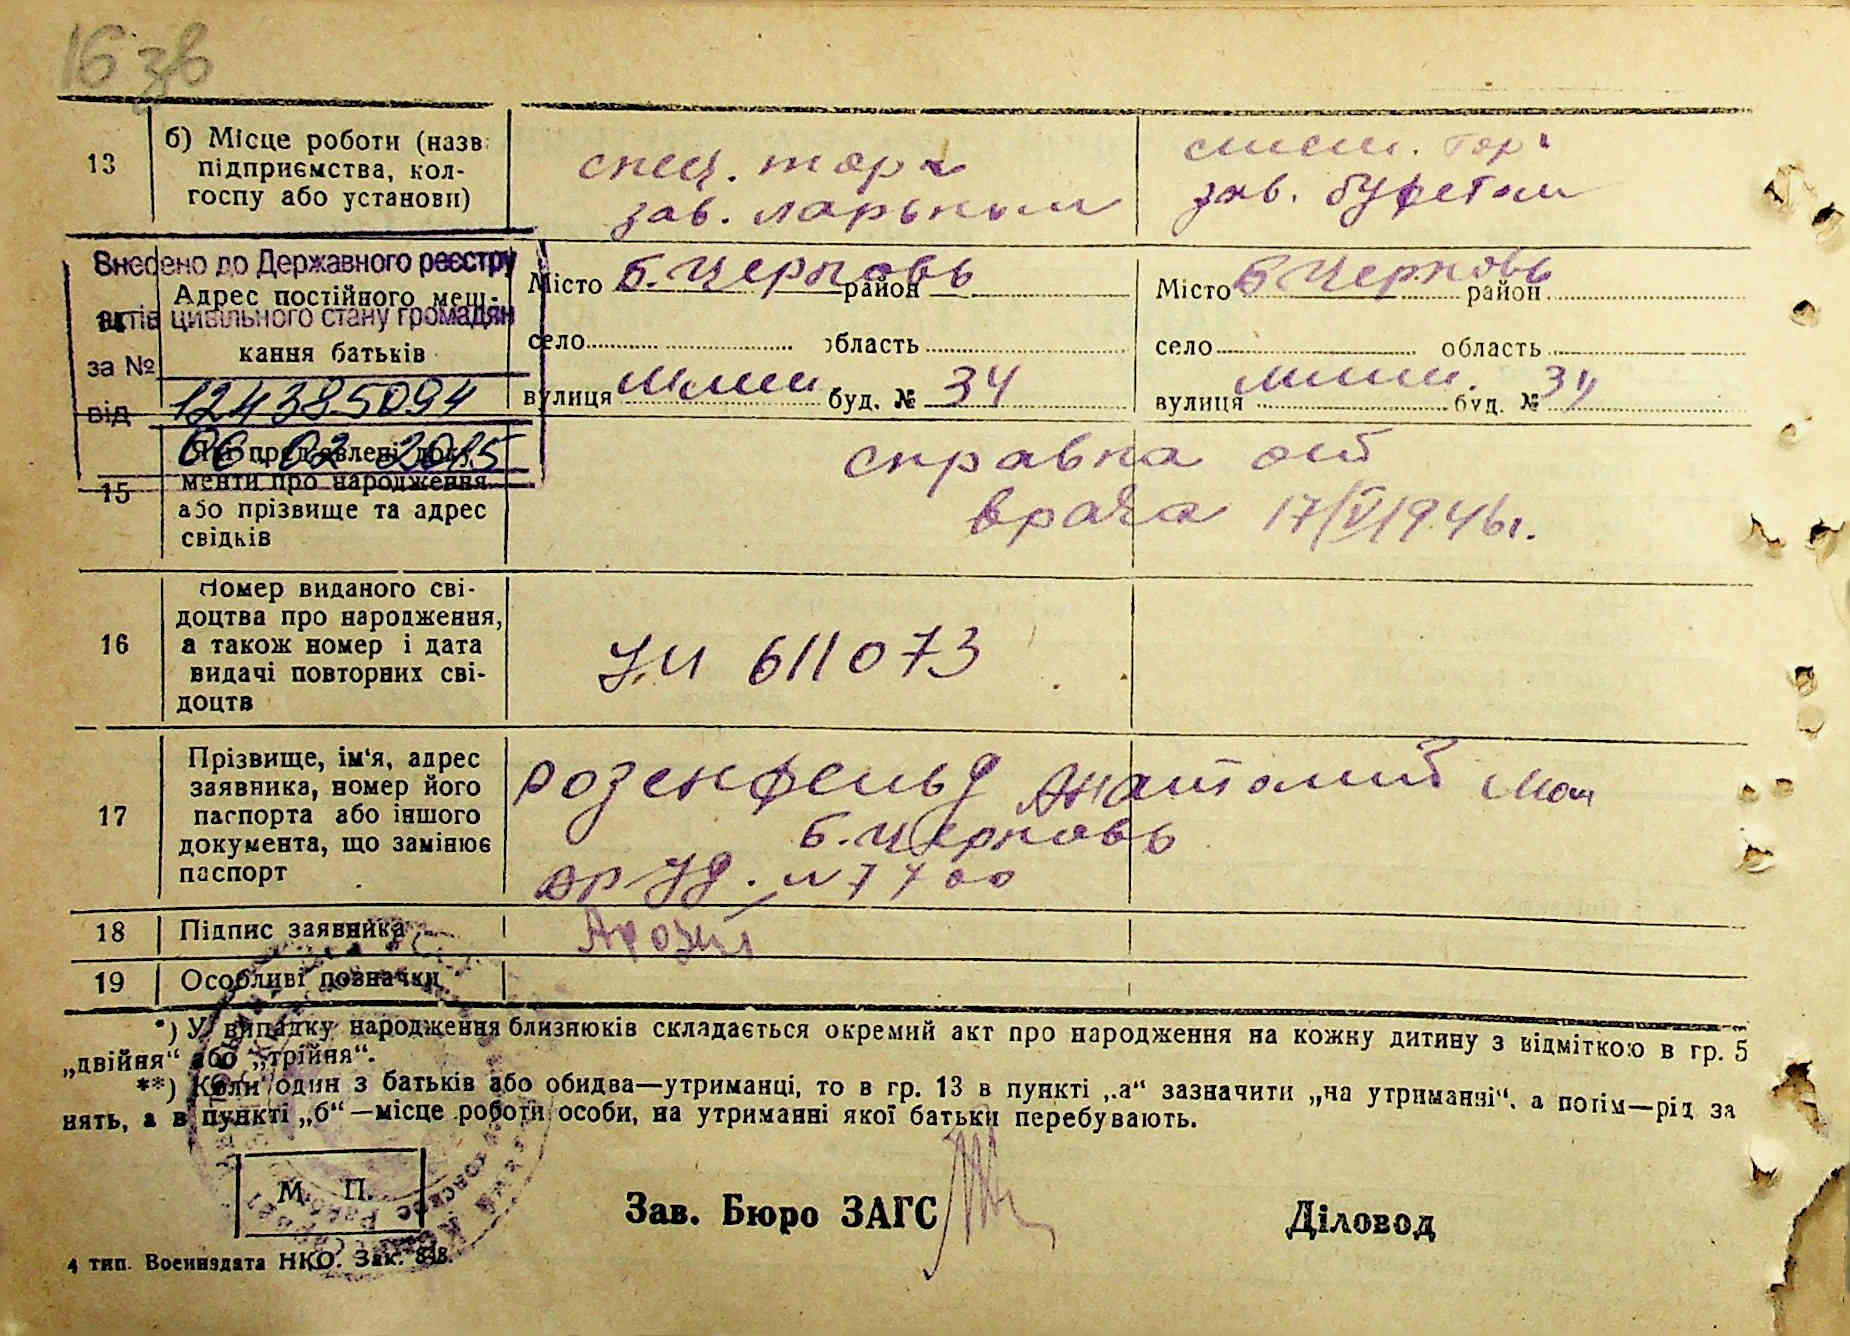 16 зв
13
б) Місце роботи (назв
підприємства, кол-
госпу або установи)
спец. торг
зав. ларьком
зав. буфетом
Внесено до Державного реєстру
актів цивільного стану громадян
за № 124385094
від 06.02 2015
Адрес постійного меш-
кання батьків
Місто Б. Церковь район
село область
вулиця буд. № 34
Місто Б Церковь район
село область
вулиця буд. № 34
15
Які пред'явлені доку-
менти про народження
або прізвище та адрес
свідків
справка от
врача 17/V 1946 г.
16
Номер виданого сві-
доцтва про народження,
а також номер і дата
видачі повторних сві-
доцтв
611073
17
Прізвище, ім'я, адрес
заявника, номер його
паспорта або іншого
документа, що замінює
паспорт
Розенфельд Анатолий
Б. Церковь
уд. N 7400
18
Підпис заявника
19
Особливі позначки
*) У випадку народження близнюків складається окремий акт про народження на кожну дитину з відміткою в гр. 5
„двійня“ або „трійня“.
**) Коли один з батьків або обидва—утриманці, то в гр. 13 в пункті „а“ зазначити „на утриманні“, а потім—рід за
нять, а в пункті „б“—місце роботи особи, на утриманні якої батьки перебувають.
М. П.
Зав. Бюро ЗАГС
Діловод
4 тип. Воениздата НКО. Зак. 838.